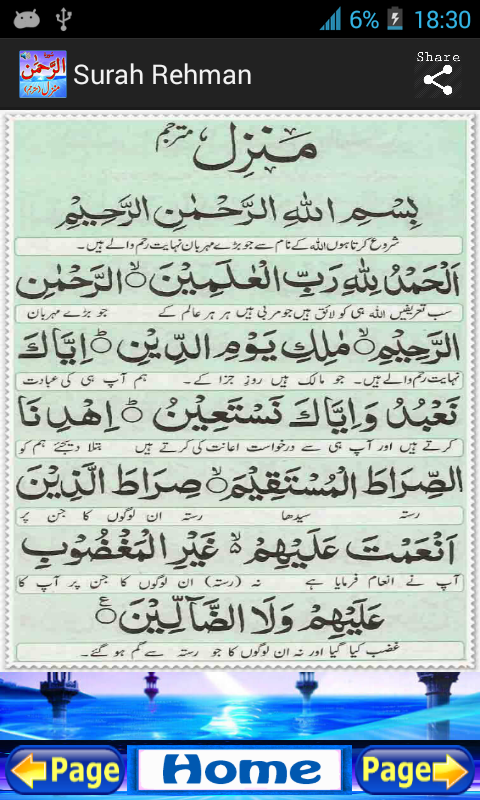 6% 18:30
الرحمٰن
منزل (مترجم)
Surah Rehman
Share
مَنزِل مترجم
بِسْمِ اللهِ الرَّحْمٰنِ الرَّحِيْمِ
شروع کرتا ہوں اللہ کے نام سے جو بڑے مہربان نہایت رحم والے ہیں۔
اَلْحَمْدُ لِلّٰهِ رَبِّ الْعٰلَمِيْنَ ۙ الرَّحْمٰنِ
سب تعریفیں اللہ ہی کو لائق ہیں جو مربی ہیں ہر ہر عالم کے جو بڑے مہربان
الرَّحِيْمِ ۙ مٰلِكِ يَوْمِ الدِّيْنِ ؕ اِيَّاكَ
نہایت رحم والے ہیں۔ جو مالک ہیں روز جزا کے۔ ہم آپ ہی کی عبادت
نَعْبُدُ وَاِيَّاكَ نَسْتَعِيْنُ ؕ اِهْدِنَا
کرتے ہیں اور آپ ہی سے درخواست اعانت کی کرتے ہیں بتلا دیجئے ہم کو
الصِّرَاطَ الْمُسْتَقِيْمَ ۙ صِرَاطَ الَّذِيْنَ
رستہ سیدھا رستہ ان لوگوں کا جن پر
اَنْعَمْتَ عَلَيْهِمْ ۙ غَيْرِ الْمَغْضُوْبِ
آپ نے انعام فرمایا ہے نہ (رستہ) ان لوگوں کا جن پر آپ کا
عَلَيْهِمْ وَلَا الضَّآلِّيْنَ ۧ
غضب کیا گیا اور نہ ان لوگوں کا جو رستہ سے گم ہو گئے۔
Page Home Page